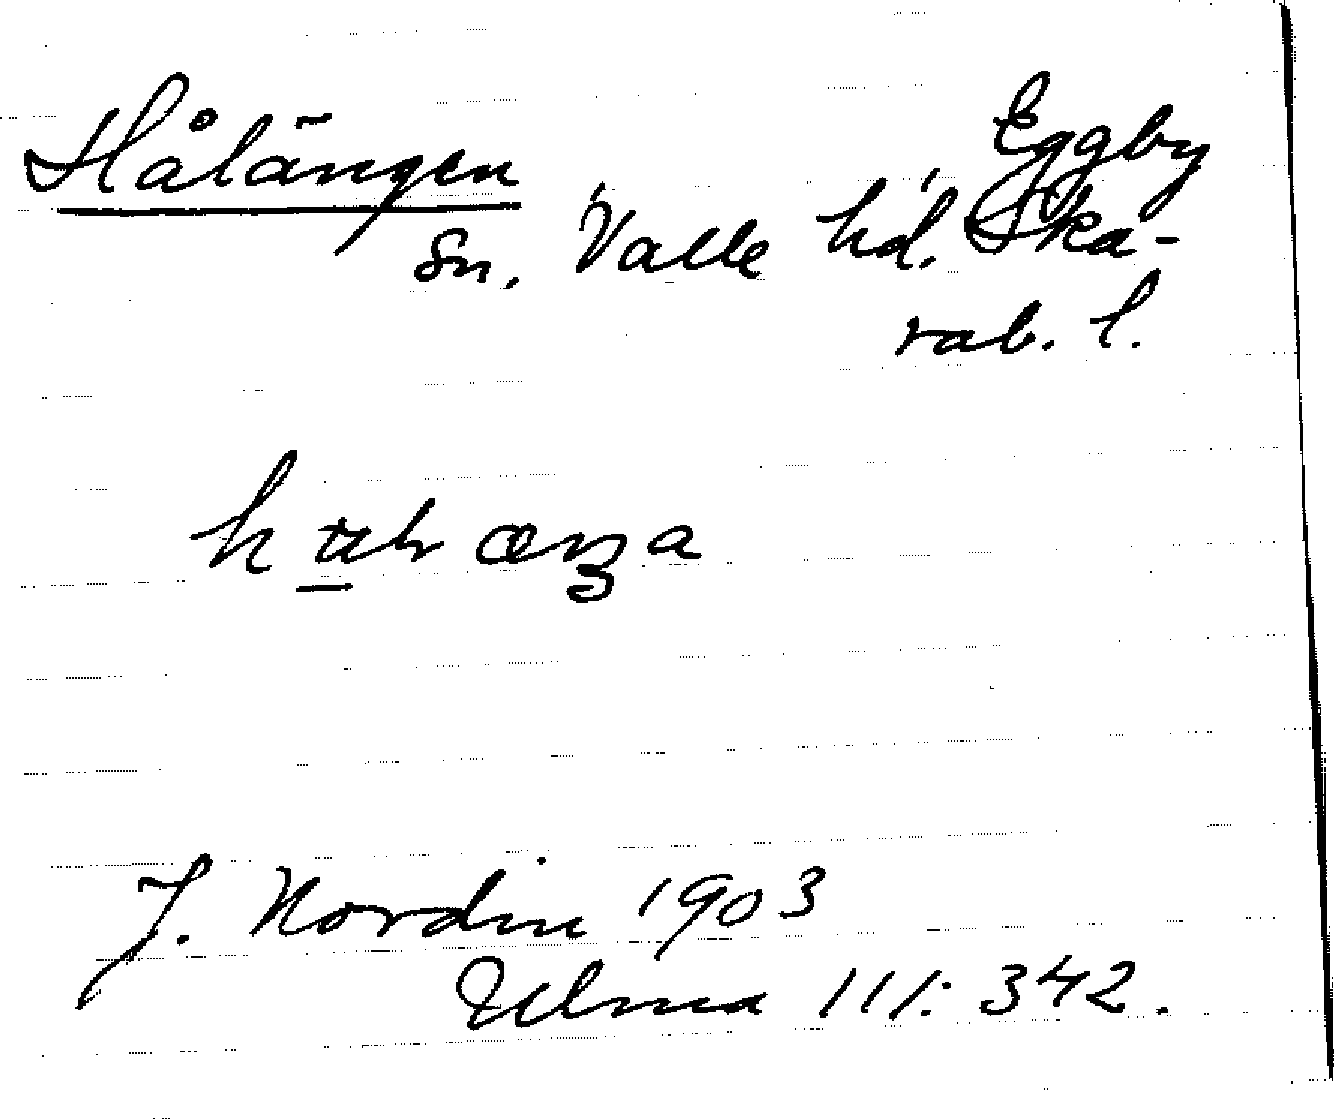 Hålängen Eggby
Sn. Valle hd. Ska-
rab. l.
J. Nordin 1903
Ulma 111:342.